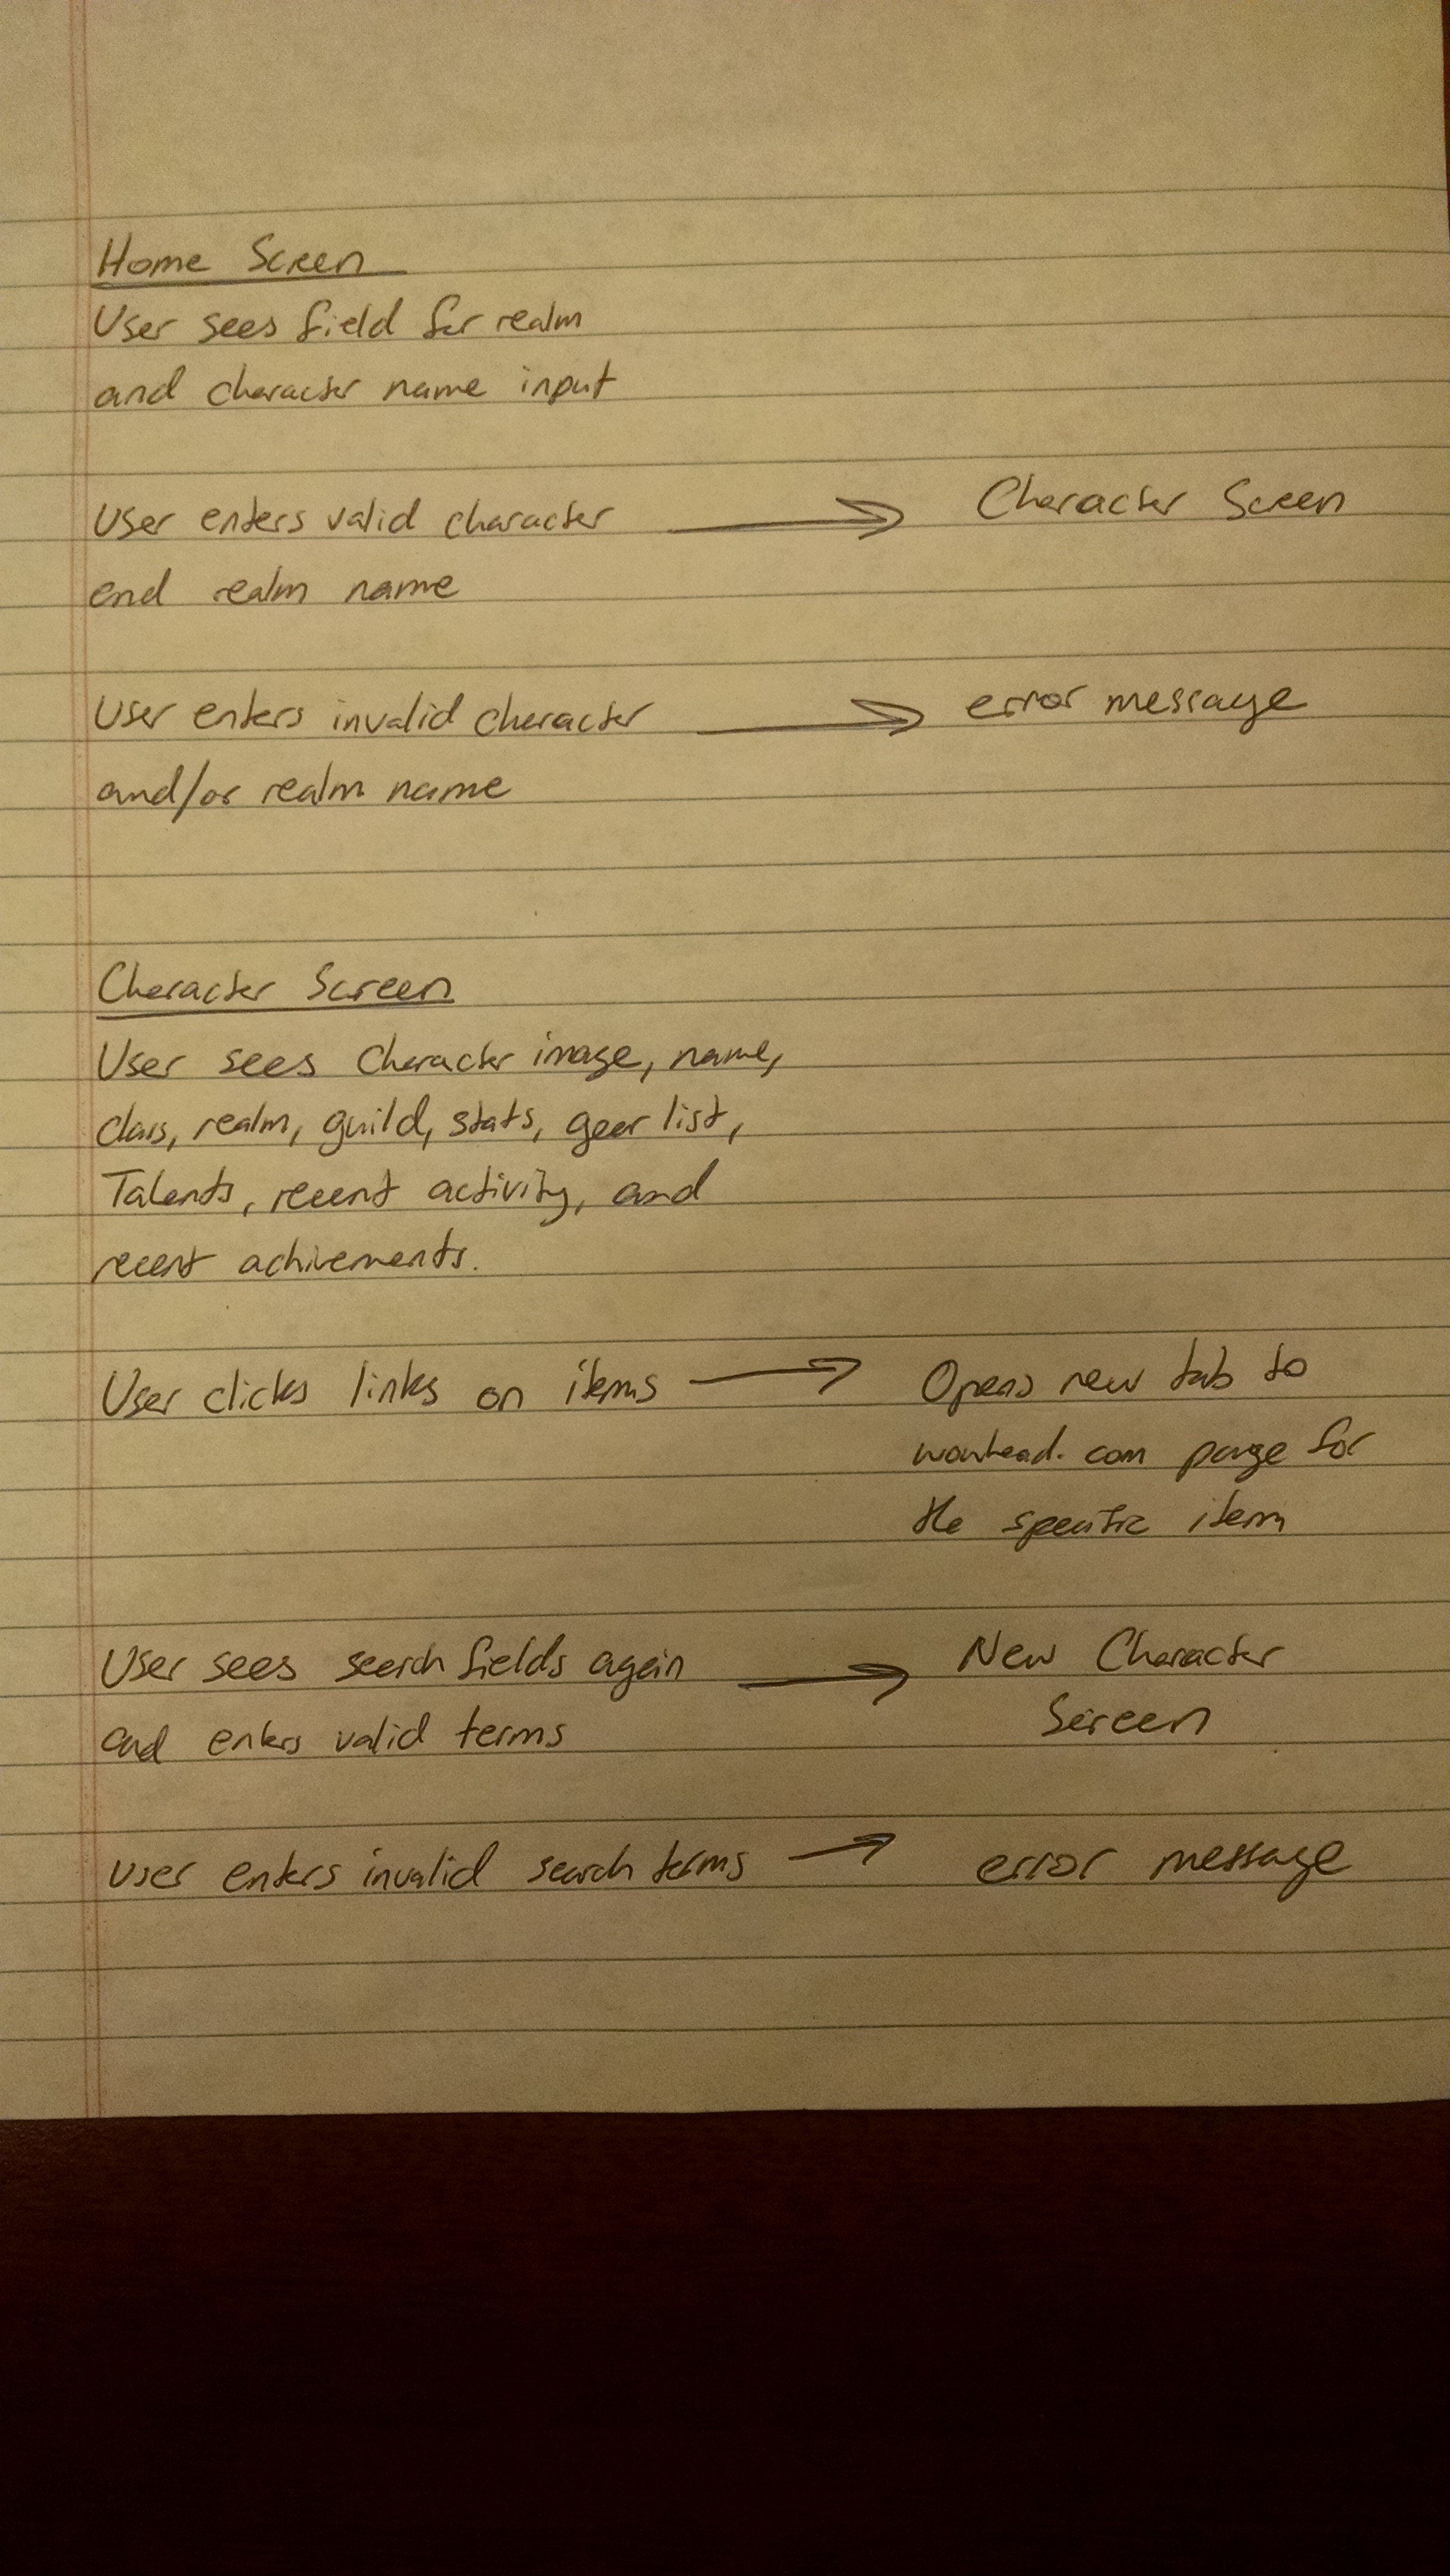 Home Screen
User sees field for realm
and character name input
User enters valid character → Character Screen
and realm name
User enters invalid character → error message
and/or realm name
Character Screen
User sees Character image, name,
class, realm, guild, stats, gear list,
Talents, recent activity, and
recent achivements.
User clicks links on items → Opens new tab to
wowhead.com page for
the specific item
User sees search fields again → New Character
Screen
and enters valid terms
User enters invalid search terms → error message